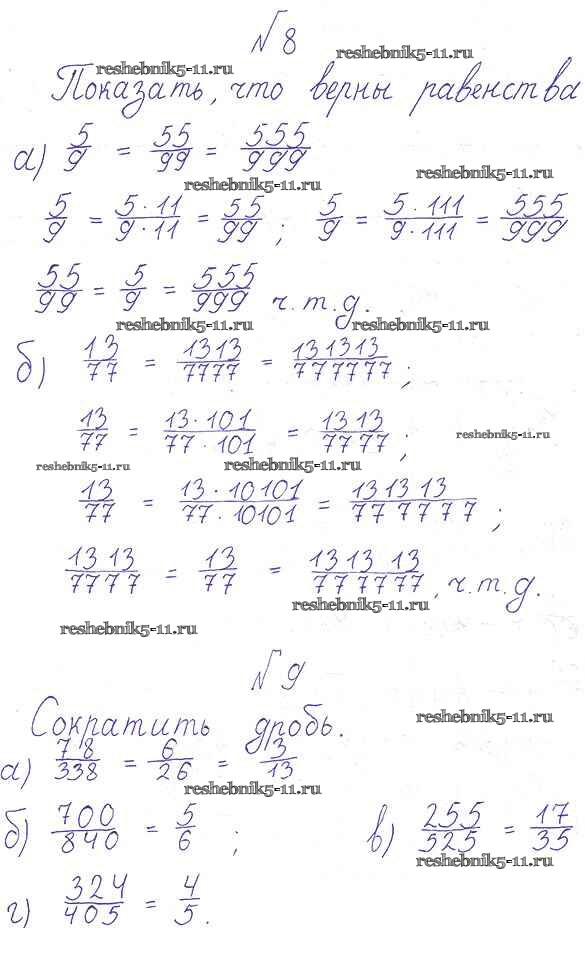 № 8
reshebnik5-11.ru
reshebnik5-11.ru
Показать, что верны равенства
а) 5/9 = 55/99 = 555/999
reshebnik5-11.ru
reshebnik5-11.ru
5/9 = 5·11/9·11 = 55/99 ; 5/9 = 5·111/9·111 = 555/999
55/99 = 5/9 = 555/999 ч.т.д.
reshebnik5-11.ru
б) 13/77 = 1313/7777 = 131313/777777 ;
13/77 = 13·101/77·101 = 1313/7777 ;
reshebnik5-11.ru
reshebnik5-11.ru
reshebnik5-11.ru
13/77 = 13·10101/77·10101 = 131313/777777 ;
1313/7777 = 13/77 = 131313/777777 , ч.т.д.
reshebnik5-11.ru
reshebnik5-11.ru
№ 9
Сократить дробь.
reshebnik5-11.ru
а) 78/338 = 6/26 = 3/13
reshebnik5-11.ru
б) 700/840 = 5/6 ; в) 255/525 = 17/35
reshebnik5-11.ru
г) 324/405 = 4/5 .